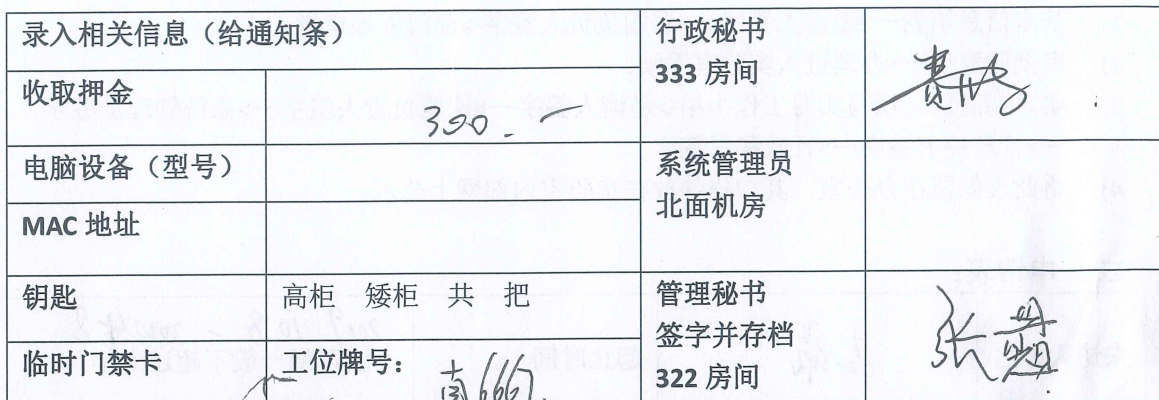 录入相关信息（给通知条）
行政秘书
333 房间
收取押金
300.-
电脑设备（型号）
系统管理员
北面机房
MAC 地址
钥匙
高柜 矮柜 共 把
管理秘书
签字并存档
322 房间
临时门禁卡
工位牌号：